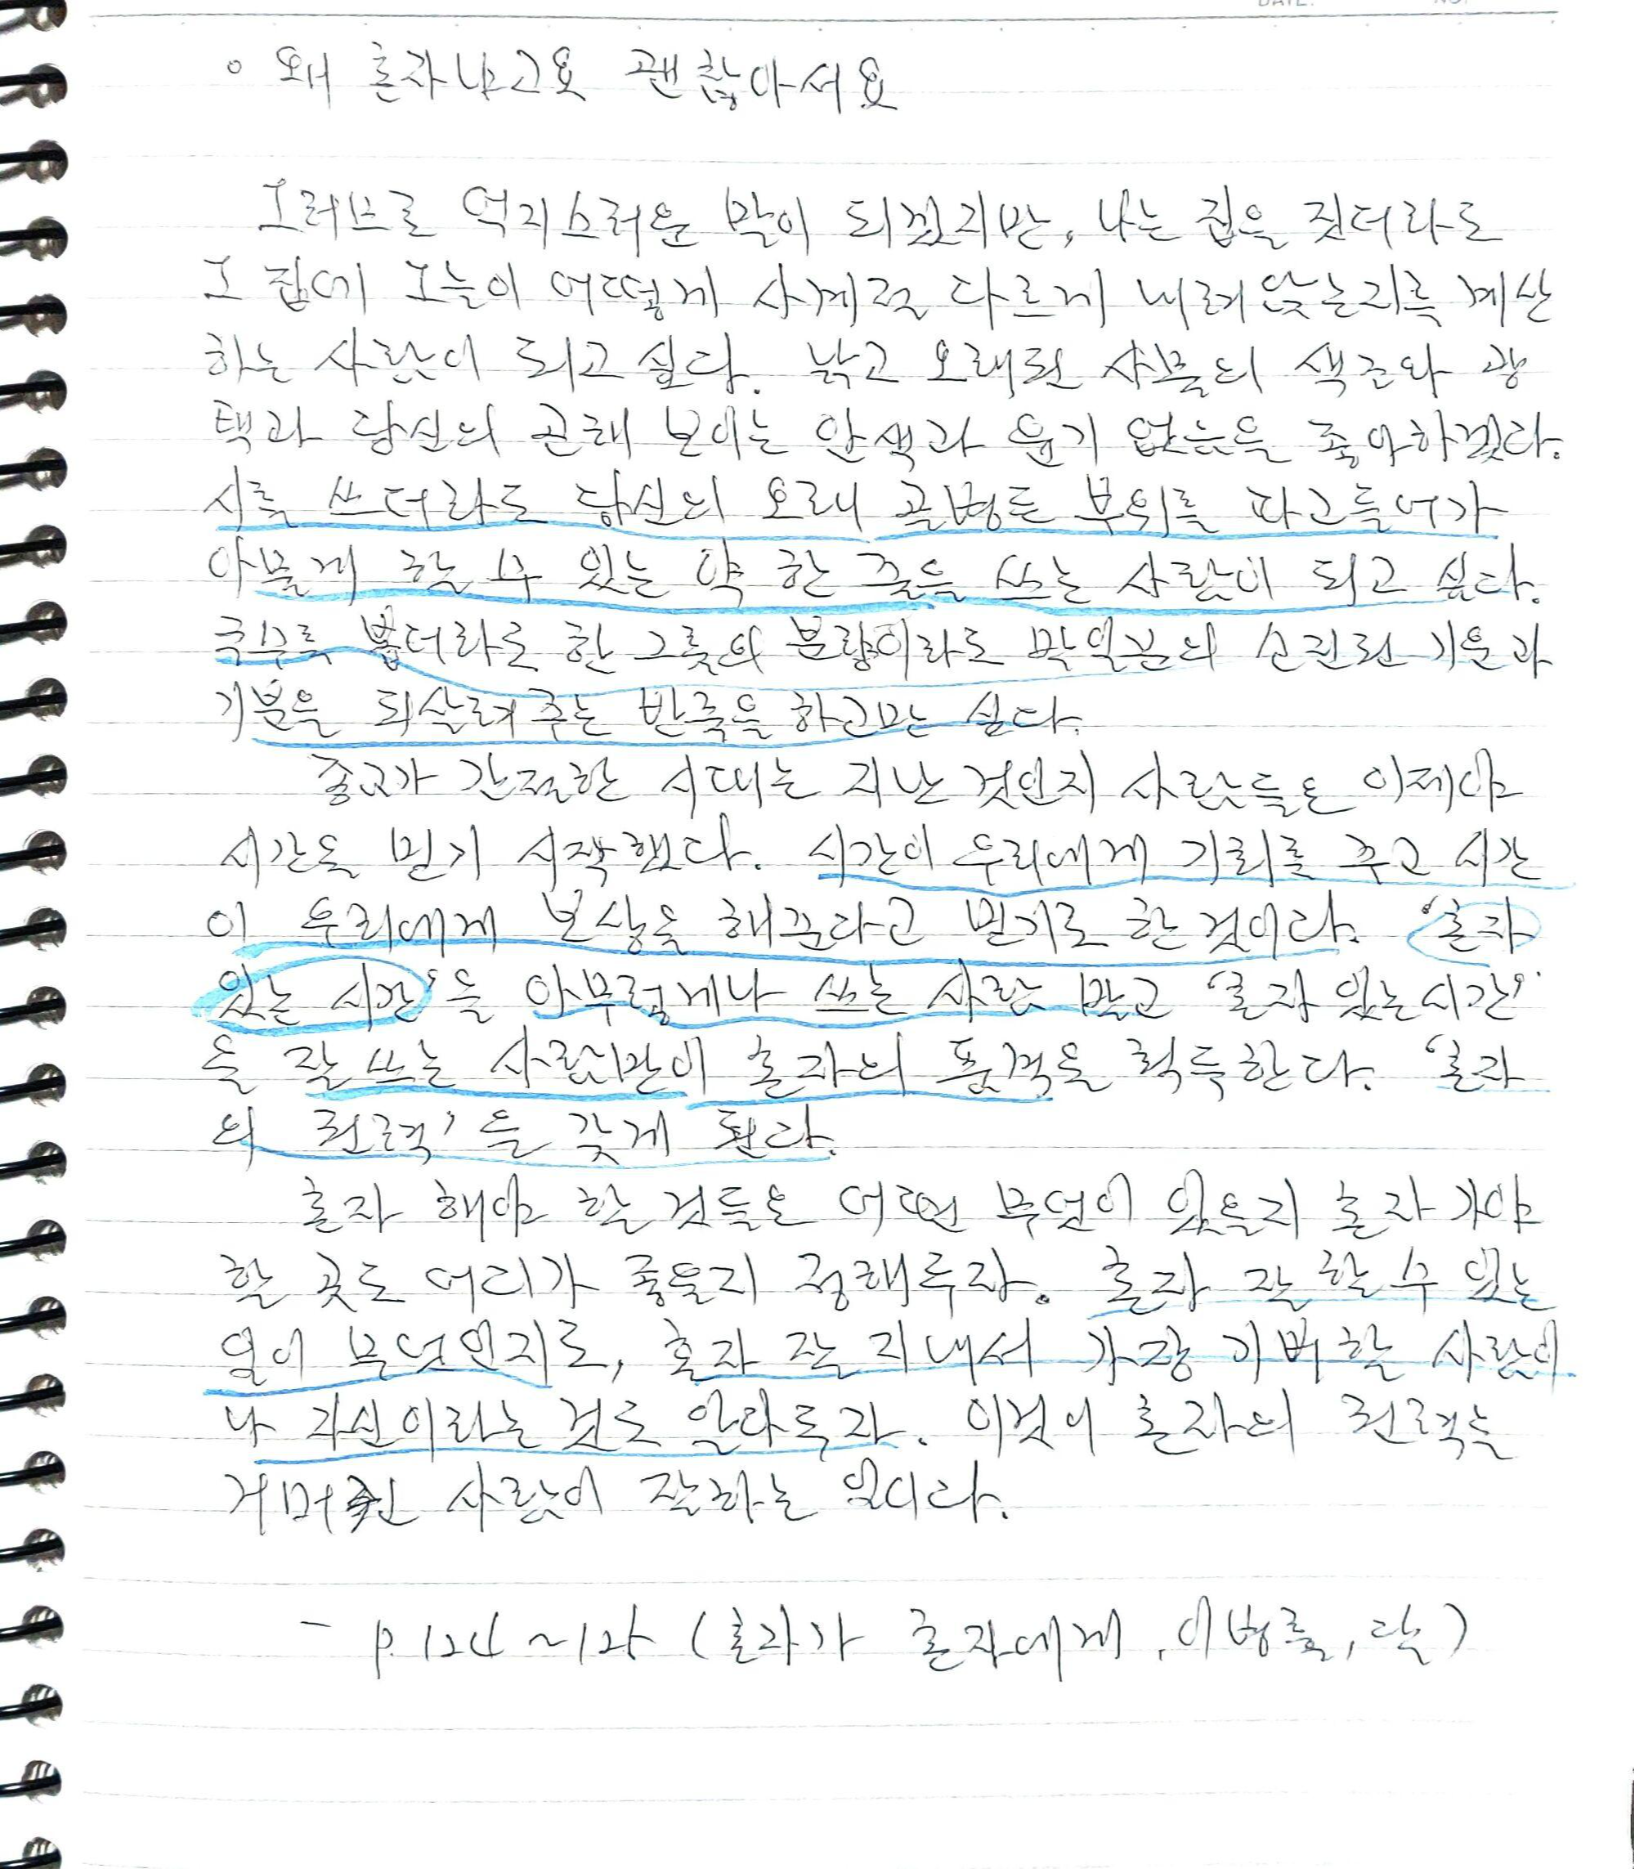 ◦ 왜 혼자냐고요 괜찮아서요
그러므로 억지스러운 말이 되겠지만, 나는 집을 짓더라도
그 집에 그늘이 어떻게 사계절 다르게 내려앉는지를 계산
하는 사람이 되고 싶다. 낡고 오래된 사물의 색조와 광
택과 당신의 곤해 보이는 안색과 윤기 없음을 좋아하겠다.
시를 쓰더라도 당신의 오래 골병든 부위를 파고들어가
아물게 할 수 있는 약 한 줄을 쓰는 사람이 되고 싶다.
국수를 뽑더라도 한 그릇의 분량이라도 만인분의 순진한 기운과
기분을 되살려 주는 반죽을 하고만 싶다.
종교가 간절한 시대는 지난 것인지 사람들은 이제야
시간을 믿기 시작했다. 시간이 우리에게 기회를 주고 시간
이 우리에게 보상을 해준다고 믿기로 한 것이다. ‘혼자
있는 시간’을 아무렇게나 쓰는 사람 말고 ‘혼자 있는 시간’
을 잘 쓰는 사람만이 혼자의 품격을 획득한다. ‘혼자
의 권력’을 갖게 된다.
혼자 해야 할 것들은 어떤 무엇이 있을지 혼자 가야
할 곳도 어디가 좋을지 정해두자. 혼자 잘 할 수 있는
일이 무엇인지도, 혼자 잘 지내서 가장 기뻐할 사람이
나 자신이라는 것도 알아두자. 이것이 혼자의 권력을
거머쥔 사람이 잘하는 일이다.
- p.124 ~ (혼자가 혼자에게, 이병률, 달)